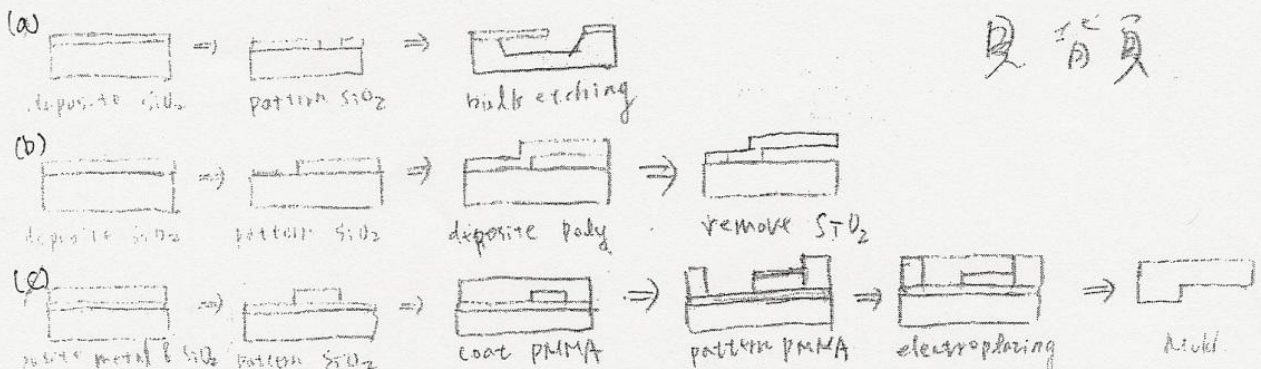 (a)
見背頁
deposite SiO2 ⇒ pattern SiO2 ⇒ bulk etching
(b)
deposite SiO2 ⇒ pattern SiO2 ⇒ deposite poly ⇒ remove SiO2
(c)
metal & SiO2 ⇒ pattern SiO2 ⇒ coat PMMA ⇒ pattern PMMA ⇒ electroplazing ⇒ Mold